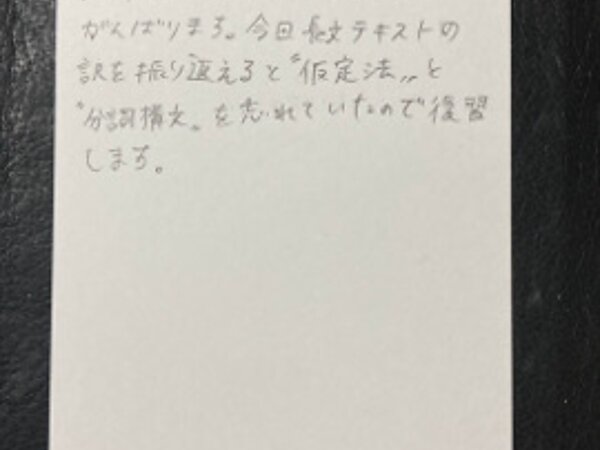 がんばります。今回長文テキストの
訳を振り返えると〝仮定法〟と
〝分詞構文〟を忘れていたので復習
します。